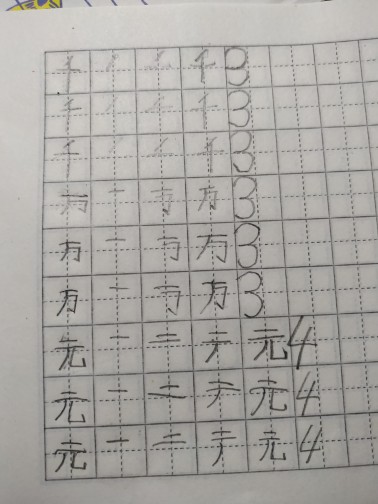 千 丿 千 3
千 丿 千 3
千 丿 千 3
万 一 丂 万 3
万 一 丂 万 3
万 一 丂 万 3
元 一 二 元 4
元 一 二 元 4
元 一 二 元 4